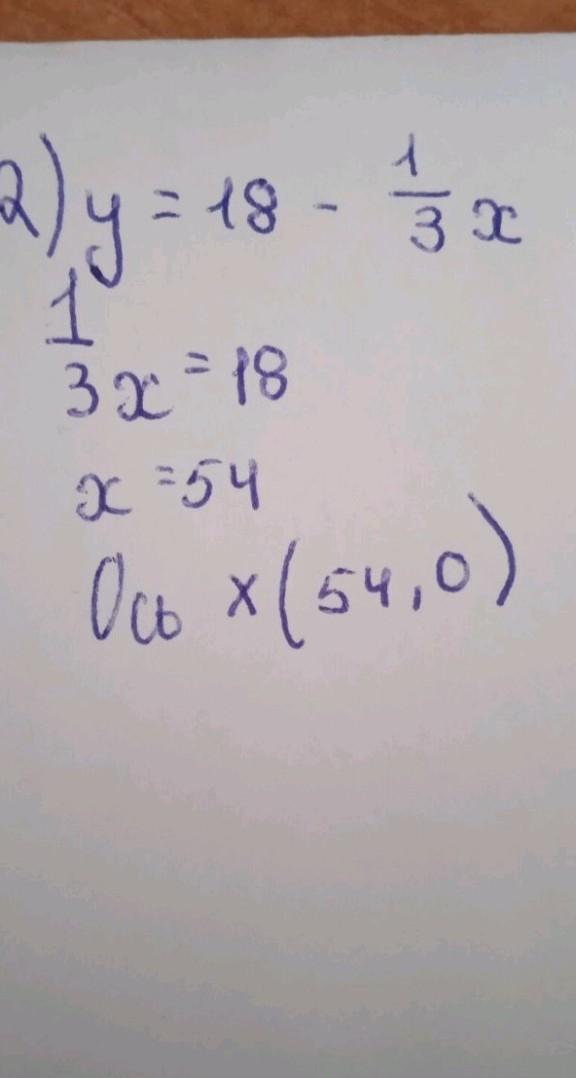 2) y = 18 - 1/3 x
1/3 x = 18
x = 54
Ось x (54, 0)